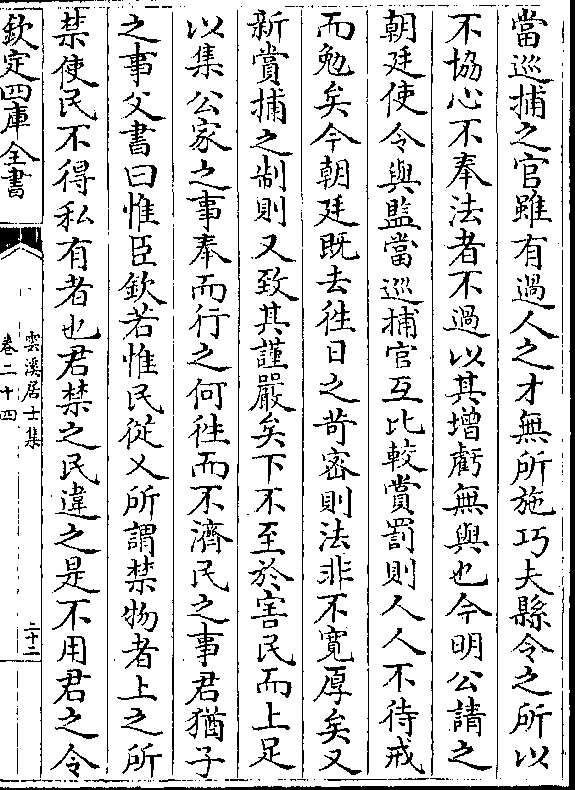 當巡捕之官雖有過人之才無所施巧夫縣令之所以
不協心不奉法者不過以其增虧無與也今明公請之
朝廷使令與監當巡捕官互比較賞罰則人人不待戒
而勉矣今朝廷既去徃日之苛密則法非不寛厚矣又
新賞捕之制則又致其謹嚴矣下不至於害民而上足
以集公家之事奉而行之何徃而不濟民之事君猶子
之事父書曰惟臣欽若惟民從乂所謂禁物者上之所
禁使民不得私有者也君禁之民違之是不用君之令
欽定四庫全書
雲溪居士集
卷二十四
二十二